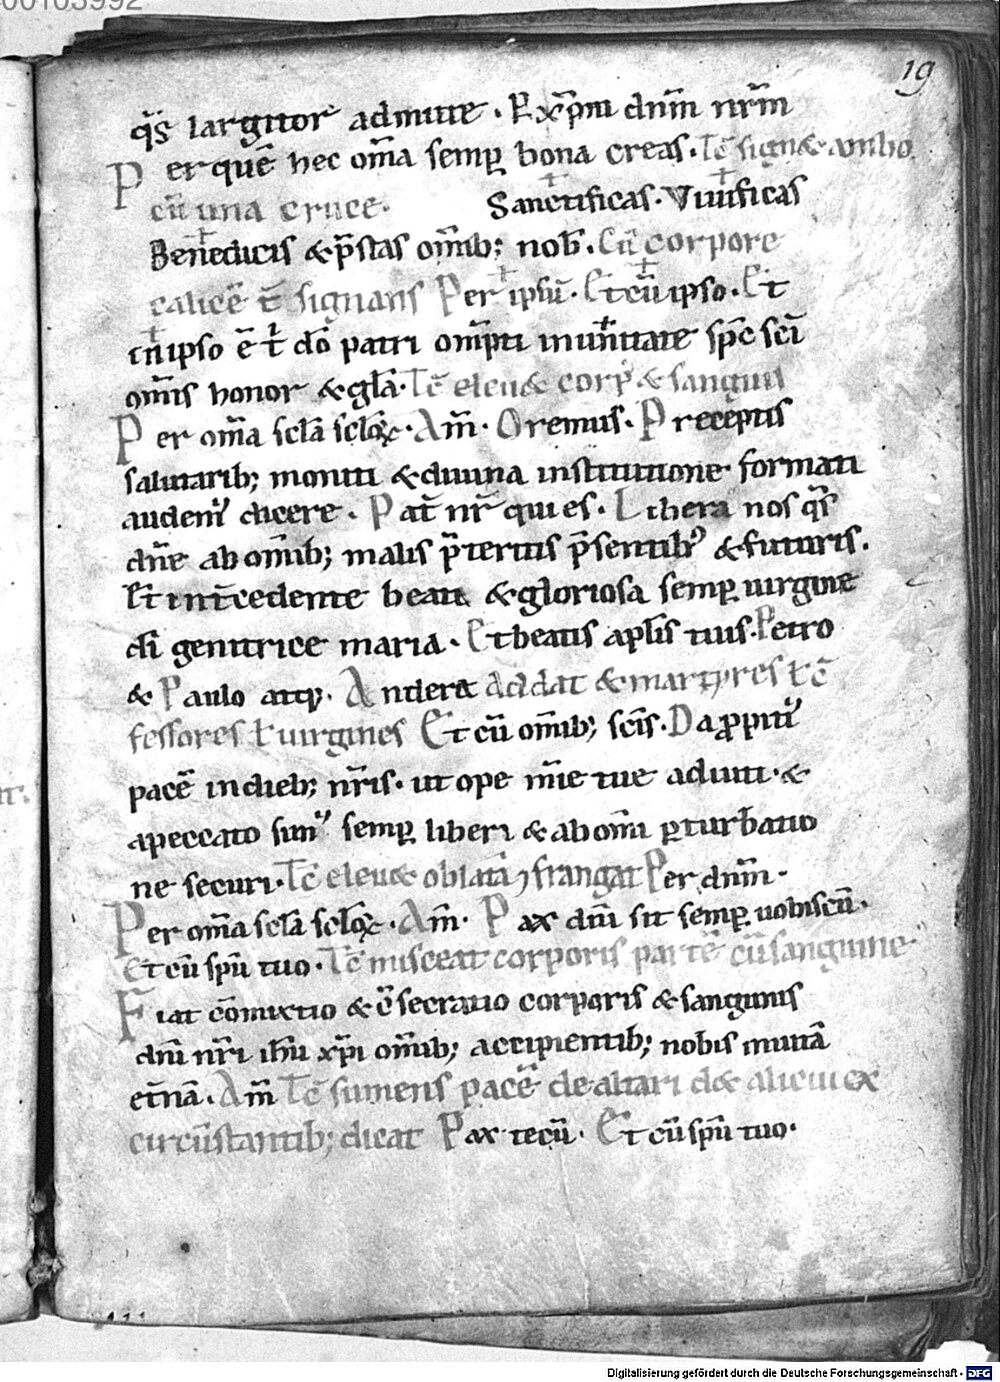 00103992
19
q̄s largitor admitte . P̲ xp̄m dn̄m nr̄m
Per quē hec om̄a semp̲ bona creas. Tc̄ sign& ambo
cū una cruce. Sanctificas. Viuificas
Benedicis & p̄stas om̄ib; nob̄. Cū corpore
calicē t̄ signans Per ipsū. Et cū ipso. Et
in ipso ē t̄ dō patri om̄pti in unitate sp̄c sc̄i
om̄is honor & gl̄a. Tc̄ eleu& corp̄ & sanguin
Per om̄a scl̄a scl̄oꝝ. Am̄. Oremus. Preceptis
salutarib; moniti & diuina institutione formati
audem᾽ dicere . Pat̄ nr̄ qui es. Libera nos q̄s
dn̄e ab om̄ib; malis p̄teritis p̄sentib᾽ & futuris.
Et int̄cedente beata & gloriosa semp̲ uirgine
dī genitrice maria. Et beatis apl̄is tuis. Petro
& Paulo atq; Andrea Addat & martyres t̄ c̄
fessores t̄ uirgines Et cū om̄ib; sc̄is. Da ꝓpiti᾽
pacē in dieb; nr̄is. ut ope mīe tue adiuti. &
a peccato sim᾽ semp̲ liberi & ab om̄i p̲turbatio
ne securi. Tc̄ eleu& oblatā ⁊ frangat Per dn̄m.
Per om̄a scl̄a scl̄oꝝ. Am̄. Pax dn̄i sit semp̲ uobiscū.
Et cū spū tuo. Tc̄ misceat corporis partē cū sanguine
Fiat cōmixtio & c̄secratio corporis & sanguinis
dn̄i nr̄i ih̄u xp̄i om̄ib; accipientib; nobis uita
et̄nā. Am̄ Tc̄ sumens pacē de altari d& alicui ex
circūstantib; dicat Pax tecū. Et cū spū tuo.
Digitalisierung gefördert durch die Deutsche Forschungsgemeinschaft - DFG